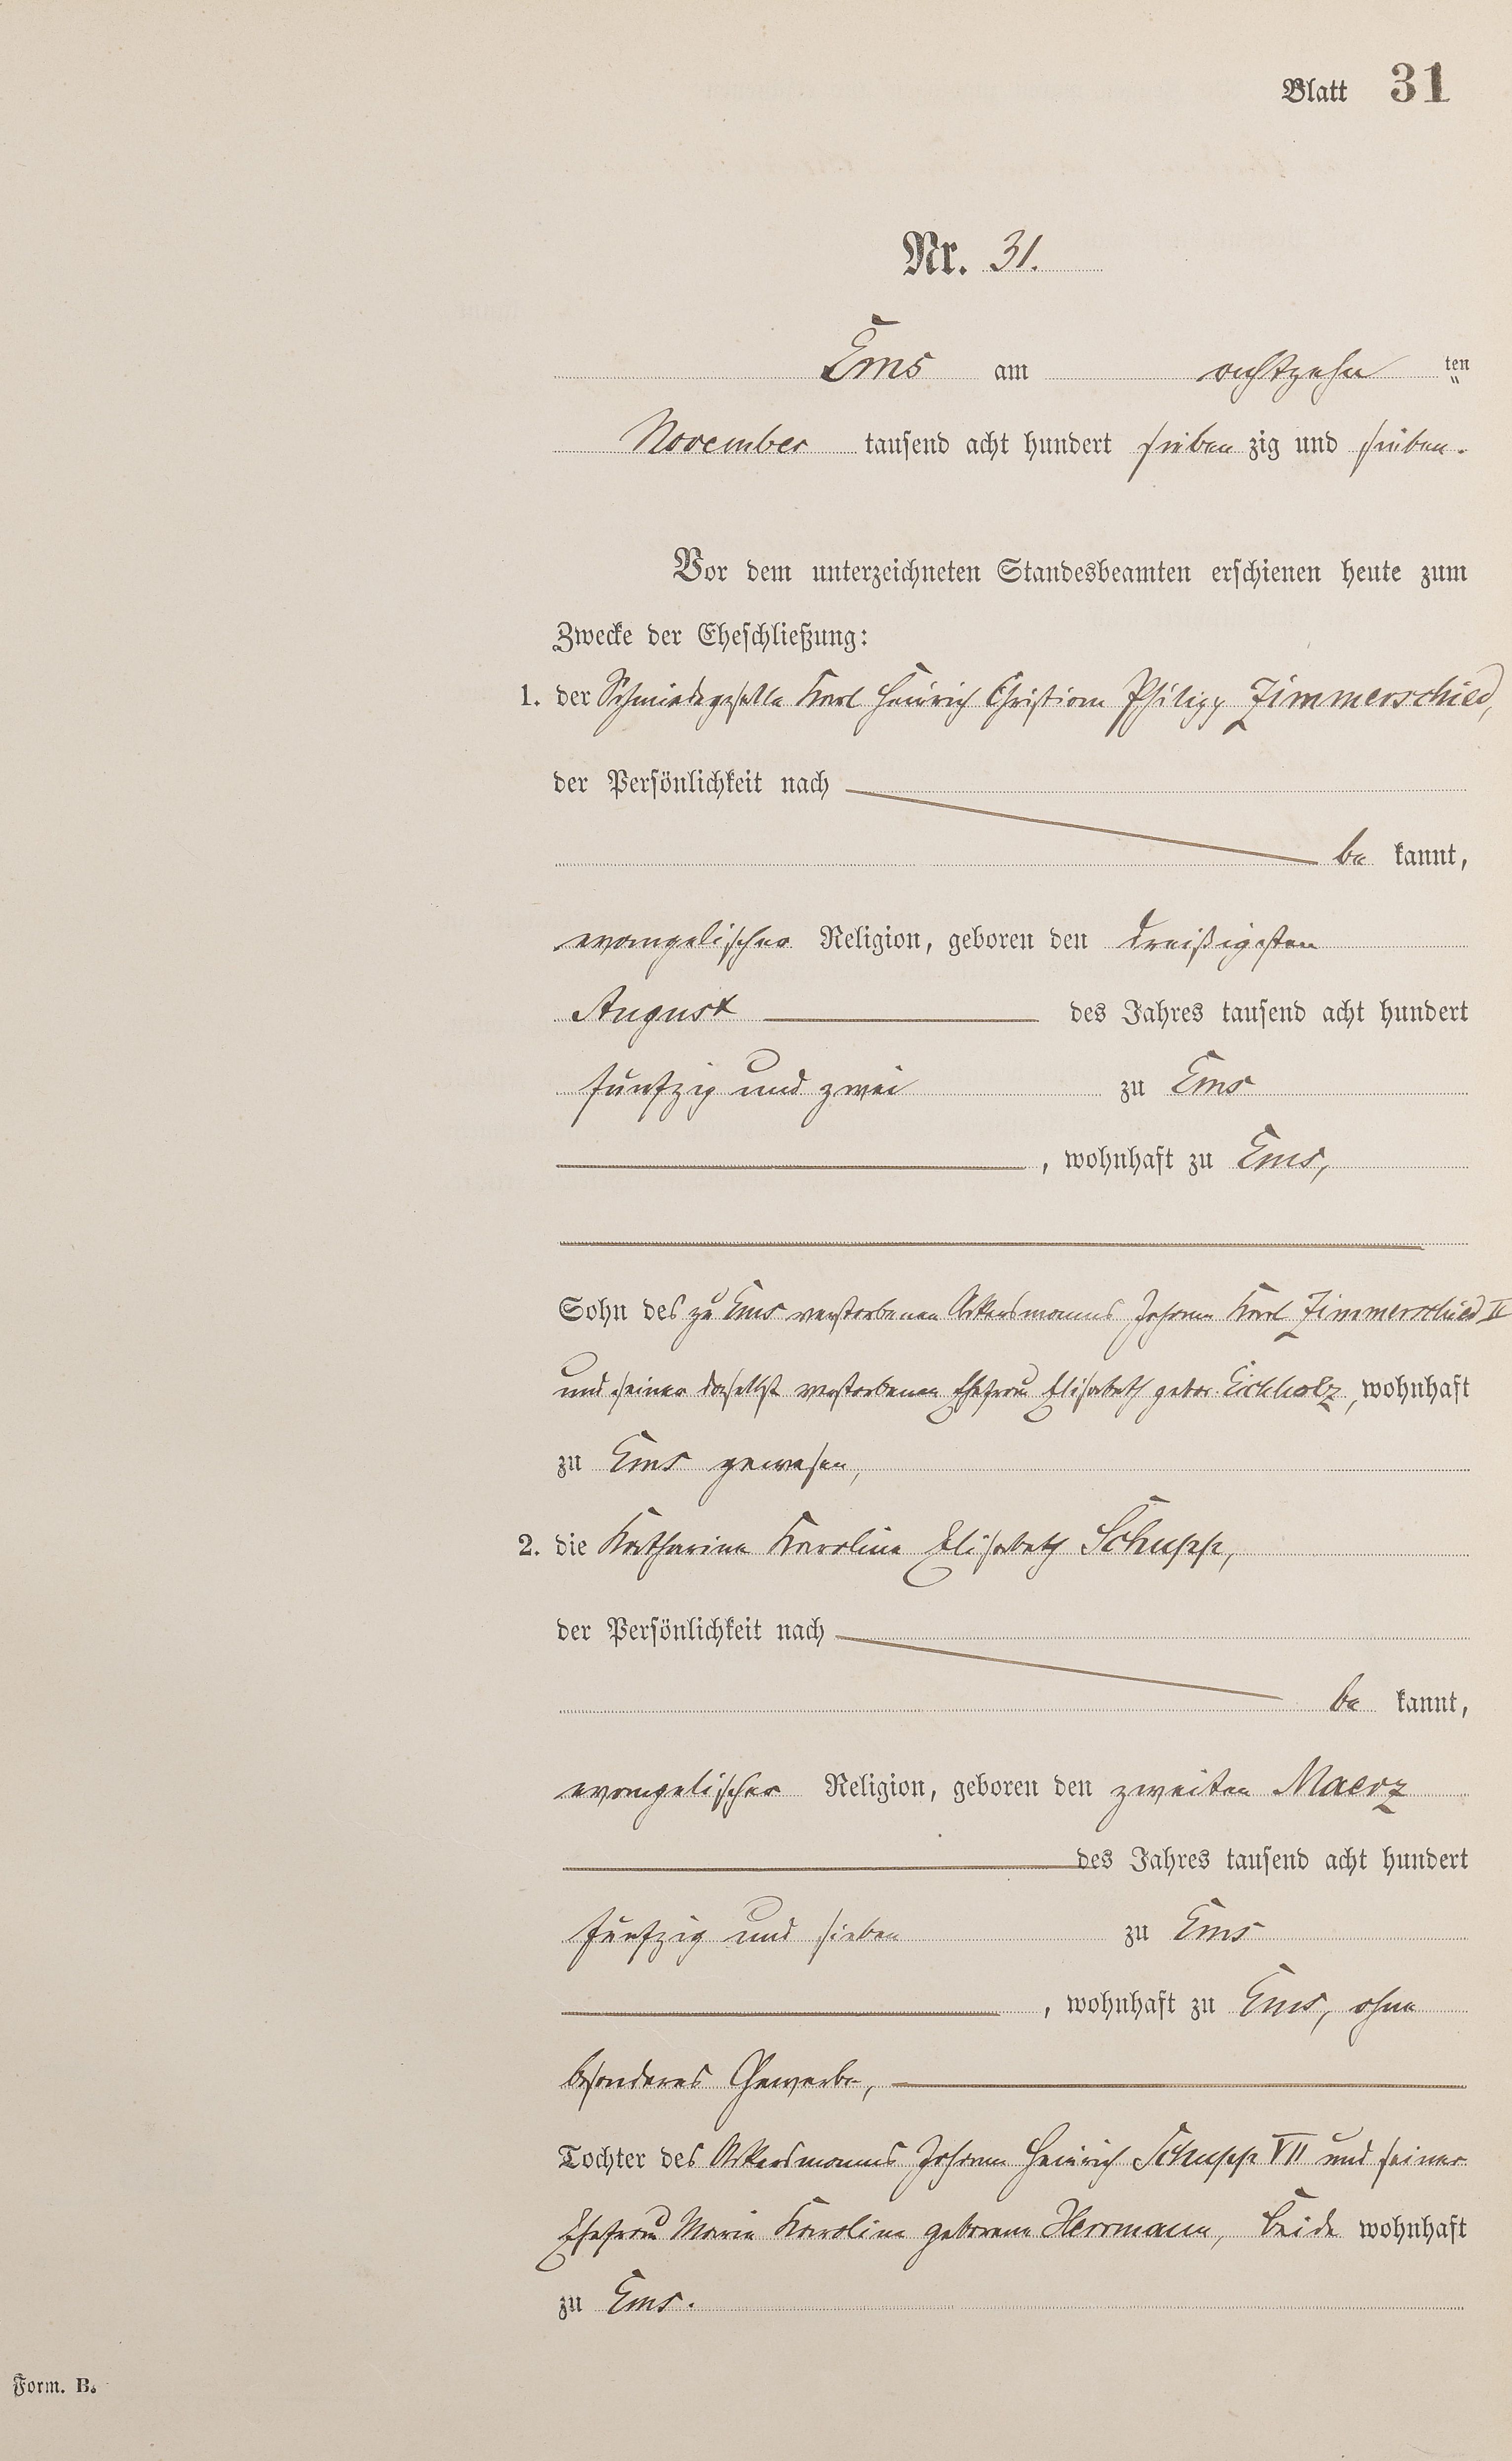 Blatt 31
Nr. 31.
Ems am achtzehn ten
November tausend acht hundert sieben zig und sieben.
Vor dem unterzeichneten Standesbeamten erschienen heute zum
Zwecke der Eheschließung:
1. der Schmiedegeselle Karl Heinrich Christian Philipp Zimmerschied,
der Persönlichkeit nach
be kannt,
evangelischer Religion, geboren den dreißigsten
August des Jahres tausend acht hundert
fünfzig und zwei zu Ems
, wohnhaft zu Ems,
Sohn des zu Ems verstorbenen Ackersmanns Johann Karl Zimmerschied II
und seiner daselbst verstorbenen Ehefrau Elisabeth gebor. Eickholz, wohnhaft
zu Ems gewesen,
2. die Katharina Karoline Elisabeth Schupp,
der Persönlichkeit nach
be kannt,
evangelischer Religion, geboren den zweiten Maerz
des Jahres tausend acht hundert
fünfzig und sieben zu Ems
, wohnhaft zu Ems, ohne
besonderes Gewerbe,
Tochter des Ackersmanns Johann Heinrich Schupp VII und seiner
Ehefrau Maria Karoline geborene Herrmann, beide wohnhaft
zu Ems.
Form. B.